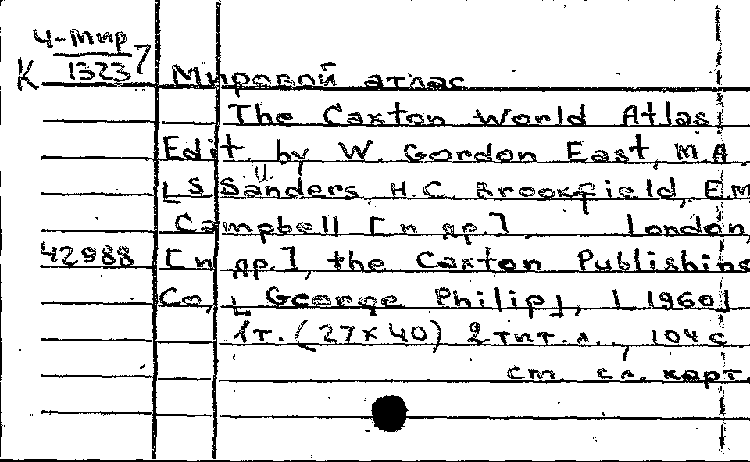 4-Мир
К 1323 7
Мировой атлас
The Caxton World Atlas
Edit. by W. Gordon East, M.A.
L S Sanders, H.C. Brookfield, E.M.
Campbell [и др.] London,
42988 [и др.], the Caxton Publishing
Co, [George Philip], [1960]
1т. (27×40) 2 тит. л., 104 с
ст. сл. карт.